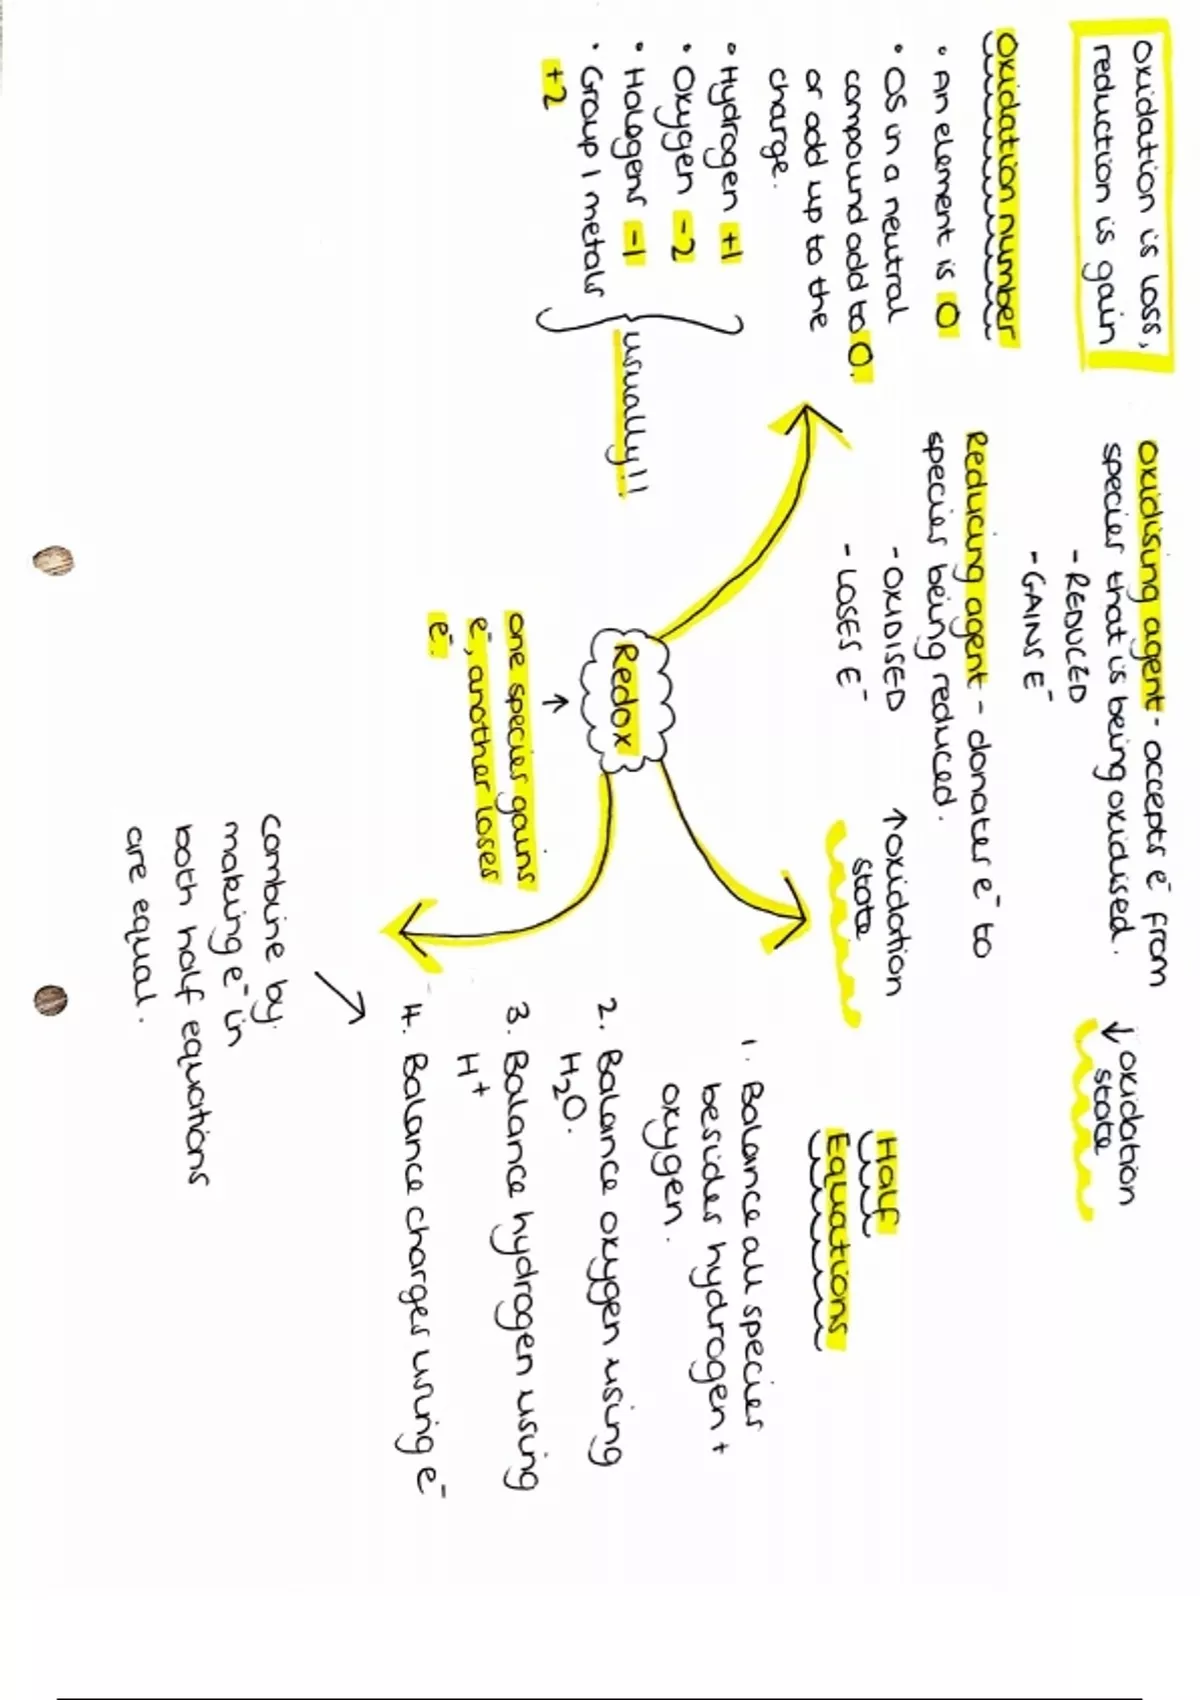 Oxidation is loss,
reduction is gain
Oxidation number
• An element is 0
• OS in a neutral
compound add to 0.
or add up to the
charge.
• Hydrogen +1
• Oxygen -2
• Halogens -1
• Group 1 metals
+2
usually!!
Oxidising agent - accepts e⁻ from
species that is being oxidised.
- REDUCED
- GAINS E⁻
↓ oxidation
state
Reducing agent - donates e⁻ to
species being reduced.
- OXIDISED
- LOSES E⁻
↑ oxidation
state
Redox
↑
one species gains
e⁻, another loses
e⁻.
Half
Equations
1. Balance all species
besides hydrogen +
oxygen.
2. Balance oxygen using
H₂O.
3. Balance hydrogen using
H⁺
4. Balance charges using e⁻
combine by
making e⁻ in
both half equations
are equal.